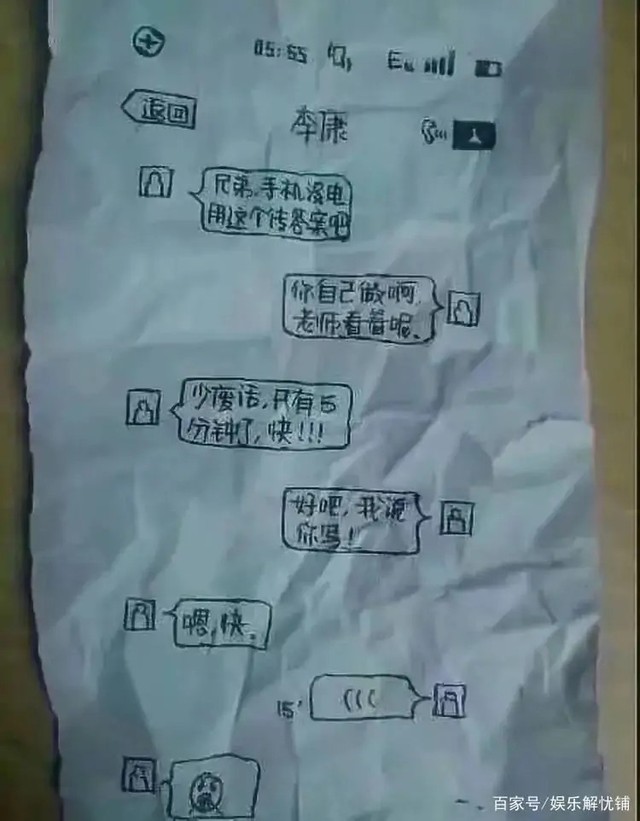 05:55
返回
李康
兄弟,手机没电
用这个传答案吧
你自己做啊,
老师看着呢、
少废话,只有5
分钟了,快!!!
好吧,我说
你写!
嗯,快。
15'
百家号/娱乐解忧铺